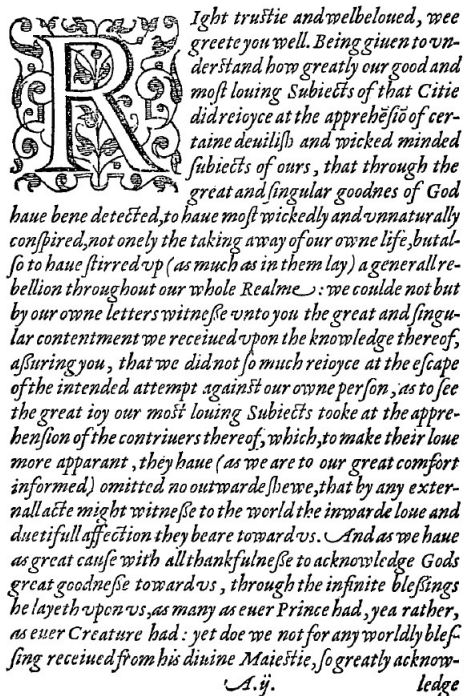 Right trustie and welbeloued, wee
greete you well. Being giuen to vn-
derstand how greatly our good and
most louing Subiects of that Citie
did reioyce at the apprehẽsiõ of cer-
taine deuilish and wicked minded
subiects of ours, that through the
great and singular goodnes of God
haue bene detected, to haue most wickedly and vnnaturally
conspired, not onely the taking away of our owne life, but al-
so to haue stirred vp (as much as in them lay) a generall re-
bellion throughout our whole Realme: we coulde not but
by our owne letters witnesse vnto you the great and singu-
lar contentment we receiued vpon the knowledge thereof,
assuring you, that we did not so much reioyce at the escape
of the intended attempt against our owne person, as to see
the great ioy our most louing Subiects tooke at the appre-
hension of the contriuers thereof, which, to make their loue
more apparant, they haue (as we are to our great comfort
informed) omitted no outwarde shewe, that by any exter-
nall acte might witnesse to the world the inwarde loue and
duetifull affection they beare toward vs. And as we haue
as great cause with all thankfulnesse to acknowledge Gods
great goodnesse toward vs, through the infinite blessings
he layeth vpon vs, as many as euer Prince had, yea rather,
as euer Creature had: yet doe we not for any worldly bles-
sing receiued from his diuine Maiestie, so greatly acknow-
A.ij. ledge